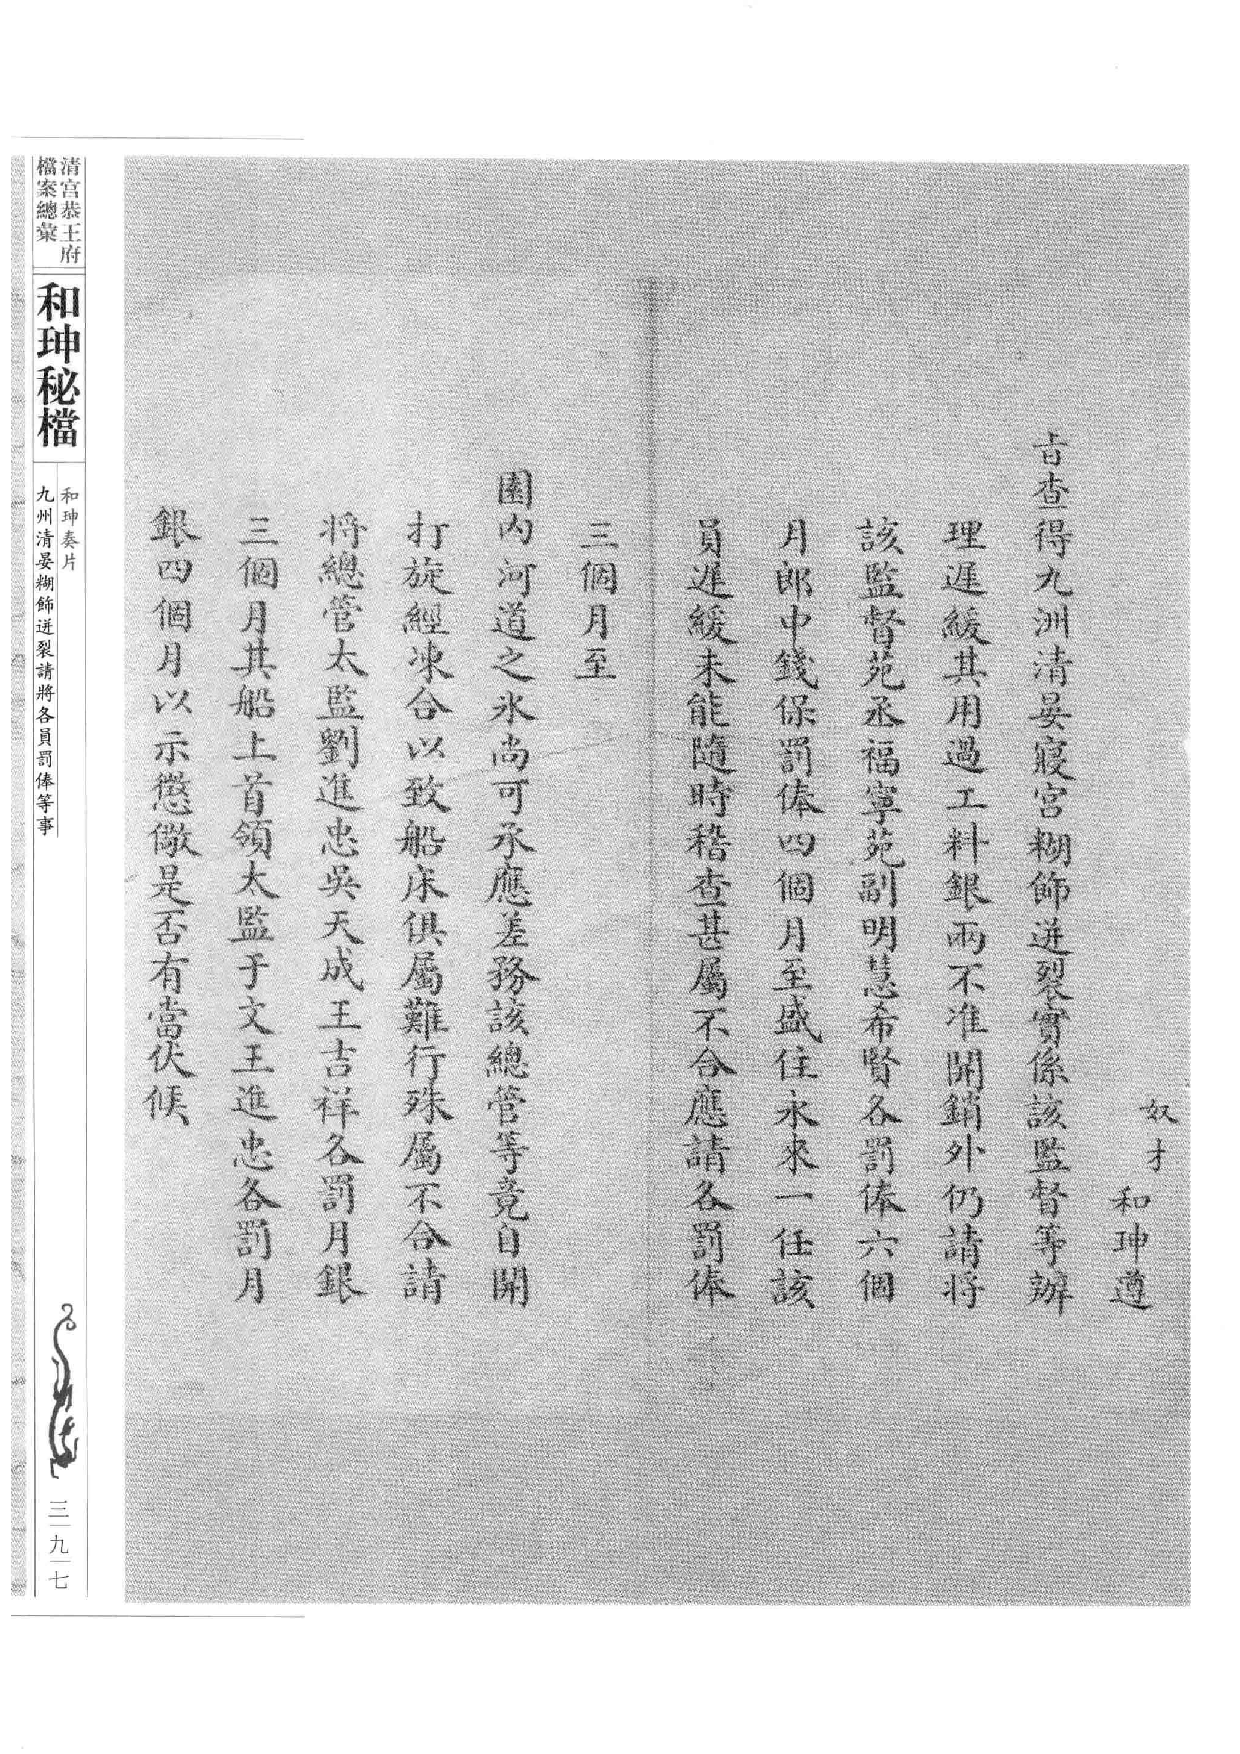 奴才和珅遵
旨查得九洲清晏寢宮糊飾迸裂實係該監督等辦
理遲緩其用過工料銀兩不准開銷外仍請将
該監督苑丞福寧苑副明慧希賢各罰俸六個
月郎中錢保罰俸四個月至盛住永來一任該
員遲緩未能隨時稽查甚屬不合應請各罰俸
三個月至
園内河道之氷尚可承應差務該總管等竟自開
打旋經凍合以致船床俱屬難行殊屬不合請
将總管太監劉進忠吳天成王吉祥各罰月銀
三個月其船上首領太監于文王進忠各罰月
銀四個月以示懲儆是否有當伏候
清宮恭王府
檔案總彙
和珅秘檔
和珅奏片
九州清晏糊飾迸裂請將各員罰俸等事
三九七